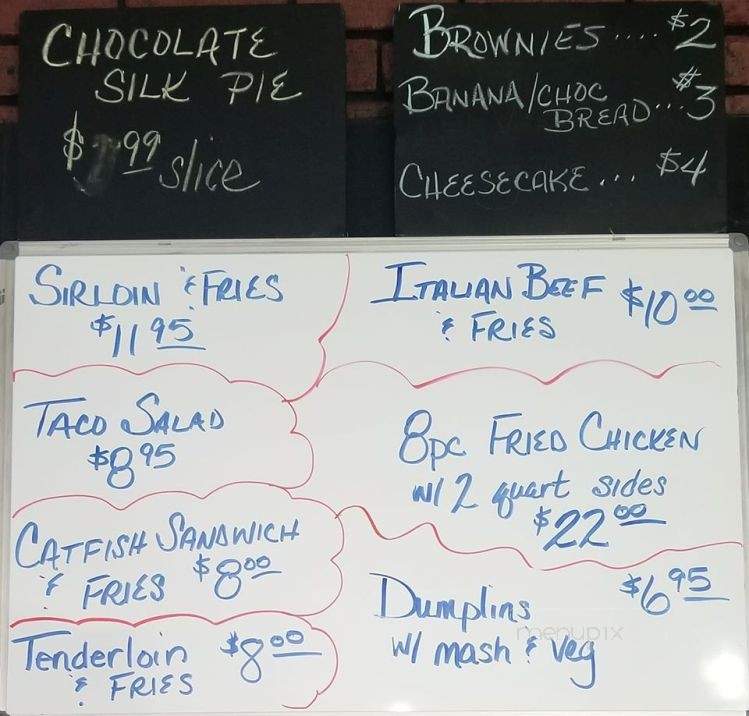 CHOCOLATE
SILK PIE
99 slice
BROWNIES.... $2
BANANA/CHOC
BREAD... $3
CHEESECAKE... $4
SIRLOIN & FRIES
$11 95
ITALIAN BEEF $10 00
& FRIES
TACO SALAD
$8 95
8pc FRIED CHICKEN
w/ 2 quart sides
$22 00
CATFISH SANDWICH
& FRIES $8 00
Dumplins $6 95
w/ mash & veg
Tenderloin $8 00
& FRIES
menupix